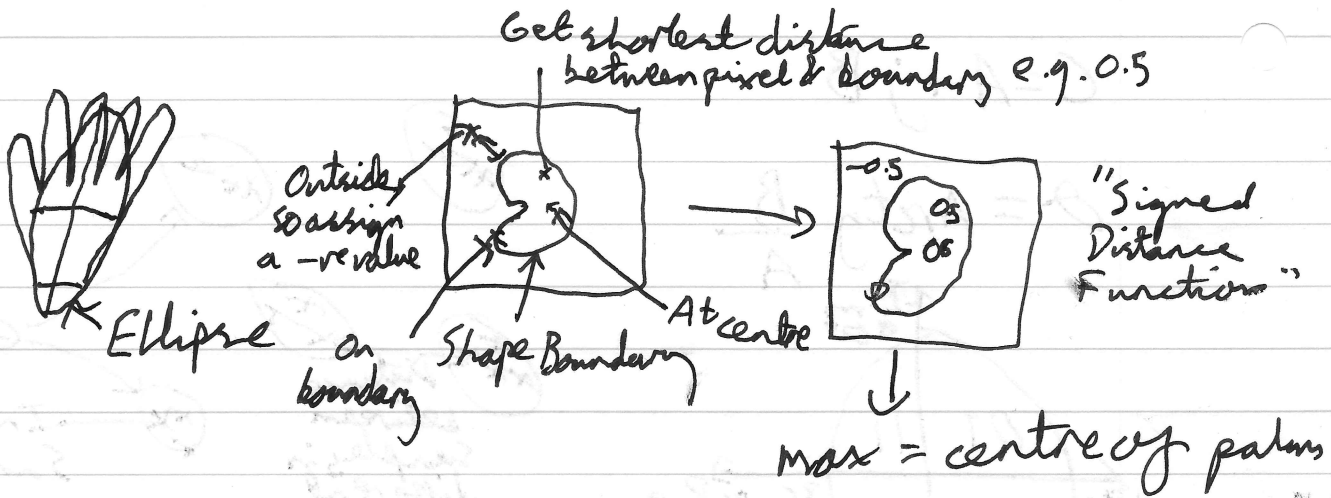 Get shortest distance
between pixel & boundary e.g. 0.5
Outside,
so assign
a -ve value
Ellipse
On
boundary
Shape Boundary
At centre
-0.5
0.5
0.6
0
"Signed
Distance
Function"
max = centre of palm